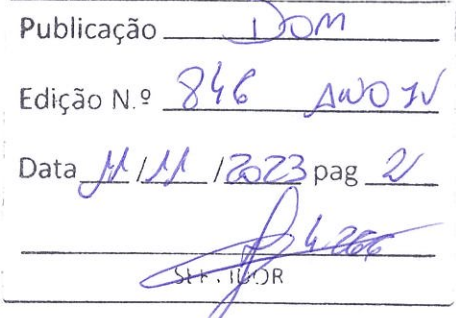 Publicação DOM
Edição N.º 846 ANO IV
Data 11/11/2023 pag 2
SERVIDOR